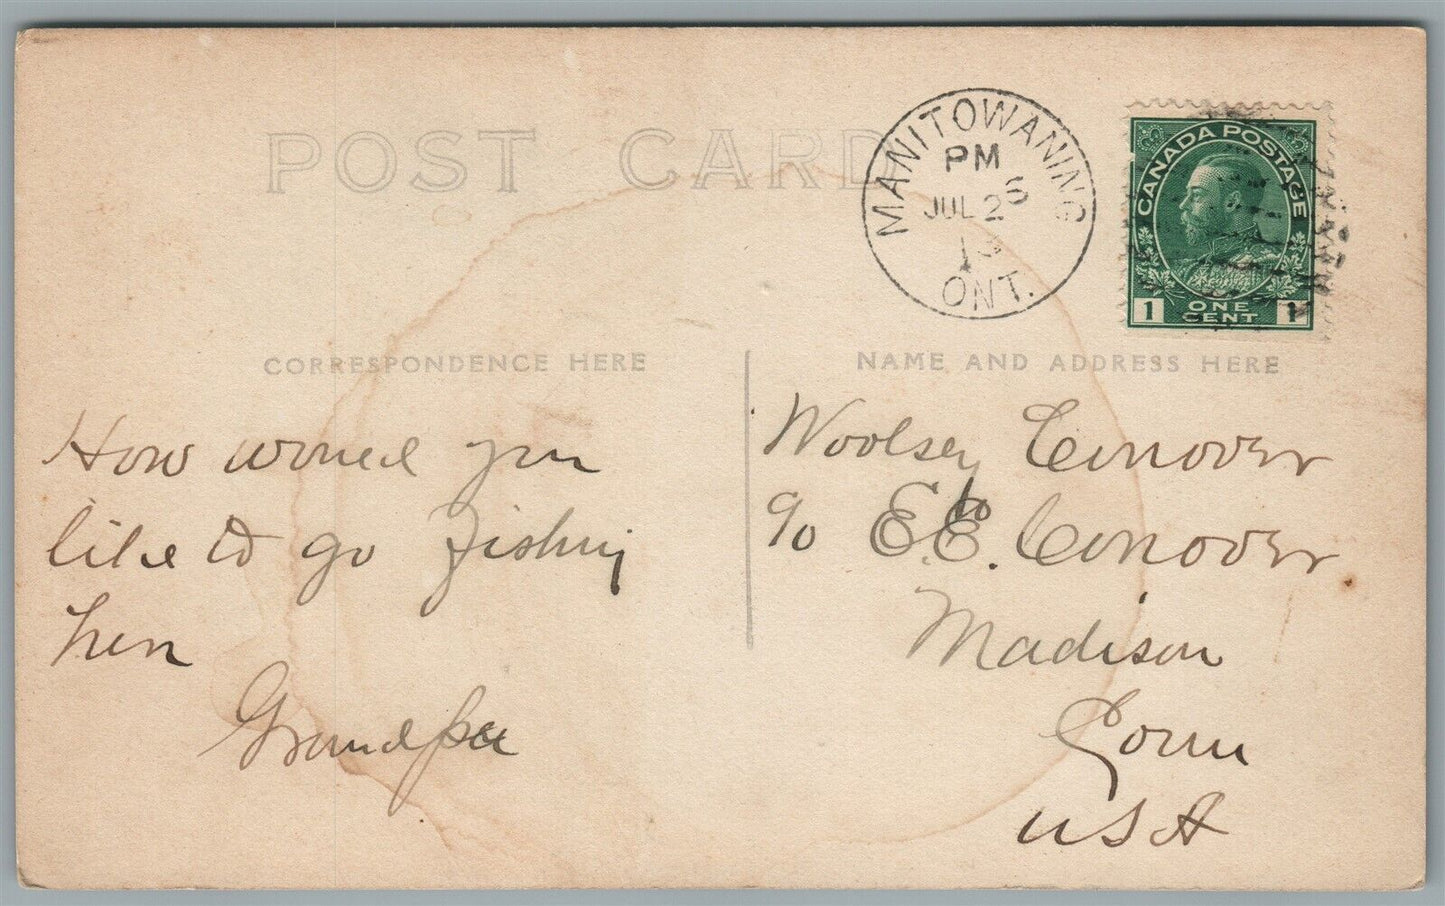 POST CARD
MANITOWANING
PM
JUL 26
13
ONT.
CANADA POSTAGE
1 ONE CENT 1
CORRESPONDENCE HERE
NAME AND ADDRESS HERE
How would you
like to go fishing
here
Grandpa
Woolsey Conover
c/o E. E. Conover
Madison
Conn
USA